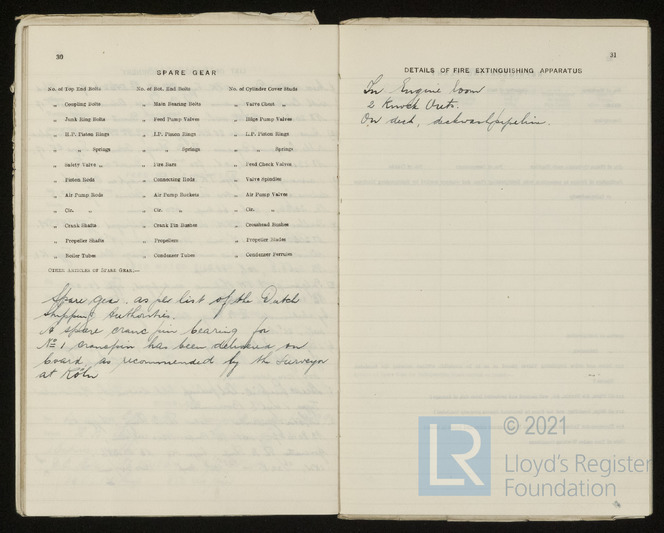 30
SPARE GEAR
No. of Top End Bolts No. of Bot. End Bolts No. of Cylinder Cover Studs
„ Coupling Bolts „ Main Bearing Bolts „ Valve Chest „
„ Junk Ring Bolts „ Feed Pump Valves „ Bilge Pump Valves
„ H.P. Piston Rings „ I.P. Piston Rings „ L.P. Piston Rings
„ „ Springs „ „ Springs „ „ Springs
„ Safety Valve „ „ Fire Bars „ Feed Check Valves
„ Piston Rods „ Connecting Rods „ Valve Spindles
„ Air Pump Rods „ Air Pump Buckets „ Air Pump Valves
„ Cir. „ „ Cir. „ „ Cir. „
„ Crank Shafts „ Crank Pin Bushes „ Crosshead Bushes
„ Propeller Shafts „ Propellers „ Propeller Blades
„ Boiler Tubes „ Condenser Tubes „ Condenser Ferrules
OTHER ARTICLES OF SPARE GEAR:—
Spare gear. as per list of the Dutch
Shipping Authorities.
A spare cranc pin bearing for
No 1 crancpin has been delivered on
board, as recommended by the Surveyor
at Köln
31
DETAILS OF FIRE EXTINGUISHING APPARATUS
In Engine room
2 Knock Outs.
On deck, deckwash pipeline.
LR
© 2021
Lloyd's Register
Foundation